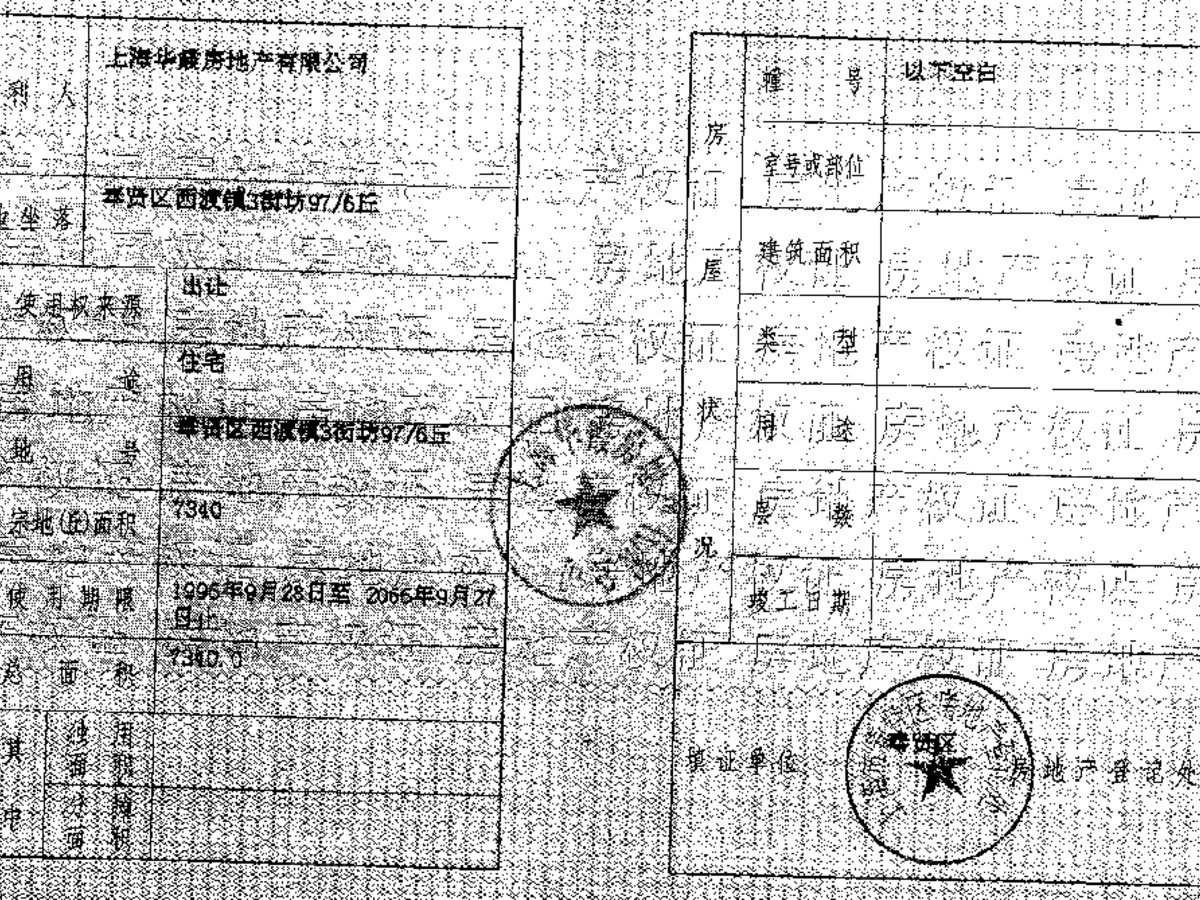 利 人 上海华晨房地产有限公司
坐落 奉贤区西渡镇3街坊97/6丘
使用权来源 出让
用 途 住宅
地 号 奉贤区西渡镇3街坊97/6丘
宗地(丘)面积 7340
使用期限 1996年9月28日至 2066年9月27
日止
总面积 7340.0
其中 独用面积
分摊面积
房屋状况
幢 号 以下空白
室号或部位
建筑面积
类 型
用 途
层 数
竣工日期
填证单位 奉贤区 房地产登记处